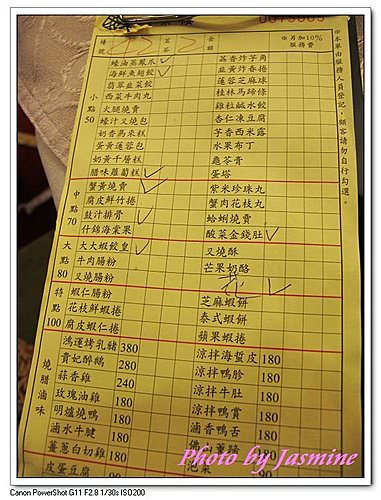 ※另加10%服務費
※本單由服務人員登記，顧客請勿自行勾選。
小點50
蠔油蒸鳳爪
海鮮魚翅餃
翡翠韭菜餃
西菜牛肉丸
火腿燒賣
蠔汁叉燒包
奶香馬來糕
蛋黃蓮蓉包
奶黃千層糕
臘味蘿蔔糕
荔香炸芋角
韭黃炸春捲
蓮蓉芝麻球
桂林馬蹄條
雞粒鹹水餃
杏仁凍豆腐
芋香西米露
水果布丁
龜苓膏
蛋塔
中點70
蟹黃燒賣
腐皮鮮竹捲
豉汁排骨
什錦海棠果
紫米珍珠丸
蟹肉花枝丸
蛤蜊燒賣
酸菜金錢肚
大點80
大大蝦餃皇
牛肉腸粉
叉燒腸粉
叉燒酥
芒果奶酪
特點100
蝦仁腸粉
花枝鮮蝦捲
腐皮蝦仁捲
芝麻蝦餅
泰式蝦餅
蘋果蝦捲
燒腊滷味
鴻運烤乳豬 380
貴妃醉鵝 280
蒜香雞 240
玫瑰油雞 180
明爐燒鴨 180
滷水牛腱 180
薑蔥白切雞 180
皮蛋豆腐 90
涼拌海蜇皮 180
涼拌鴨胗 180
涼拌牛肚 180
涼拌鴨賞 180
滷香鴨舌 180
180
泡菜
Photo by Jasmine
Canon PowerShot G11 F2.8 1/30s ISO200